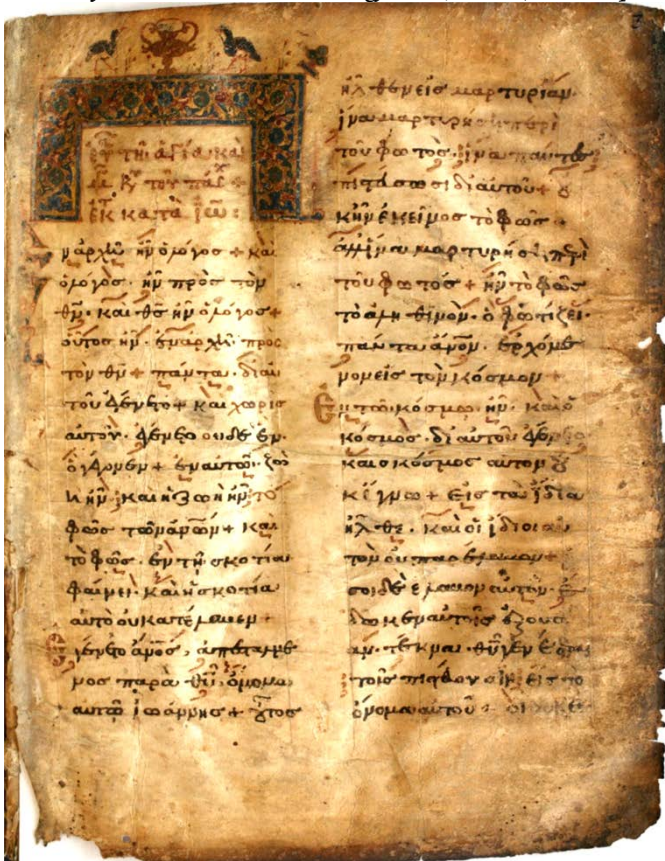 τῆ ἁγία καὶ
τοῦ πάσχ +
ἐκ κατὰ ἰω:
ν ἀρχῆ ἦν ὁ λόγος + καὶ
ὁ λόγος · ἦν πρὸς τὸν
θν · καὶ θς ἦν ὁ λόγος +
οὗτος ἦν · ἐν ἀρχῆ · προς
τὸν θν + πάντα · δι αυ
τοῦ ἐγένετο + καὶ χωρις
αὐτοῦ · ἐγένετο οὐδὲ ἕν ·
ὃ γέγονεν + ἐν αὐτῶ · ζω
ὴ ἦν · καὶ ἡ ζωὴ ἦν · τὸ
φῶς τῶν ἀνων + καὶ
τὸ φῶς · ἐν τῆ σκοτία
φαίνει · καὶ ἡ σκοτία
αὐτὸ οὐ κατέλαβεν +
Ἐγένετο ἀνος, ἀπεσταλμέ
νος παρὰ θυ · ὄνομα
αὐτῶ ἰωάννης + οὗτος
ἦλθεν εἰς μαρτυρίαν ·
ἵνα μαρτυρήση περὶ
τοῦ φωτός · ἵνα πάντες
πιστεύσωσι δι αὐτοῦ + οὐ
κ ἦν ἐκεῖνος τὸ φῶς +
ἀλλ ἵνα μαρτυρήση περὶ
τοῦ φωτός + ἦν τὸ φῶς
τὸ ἀληθινόν · ὃ φωτίζει ·
πάντα ἀνον · ἐρχόμε
νον εἰς τὸν κόσμον +
Ἐν τῶ κόσμω ἦν · καὶ ὁ
κόσμος · δι αὐτοῦ ἐγένετο
καὶ ὁ κόσμος αὐτὸν οὐ
κ ἔγνω + εἰς τὰ ἴδια
ἦλθε · καὶ οἱ ἴδιοι αὐ
τὸν οὐ παρέλαβον +
ὅσοι δὲ ἔλαβον αὐτόν · ἔ
δωκεν αὐτοῖς ἐξουσί
αν · τέκνα θυ γενέσθαι
τοῖς πιστεύουσιν εἰς τὸ
ὄνομα αὐτοῦ + οἳ οὐκ ἐξ